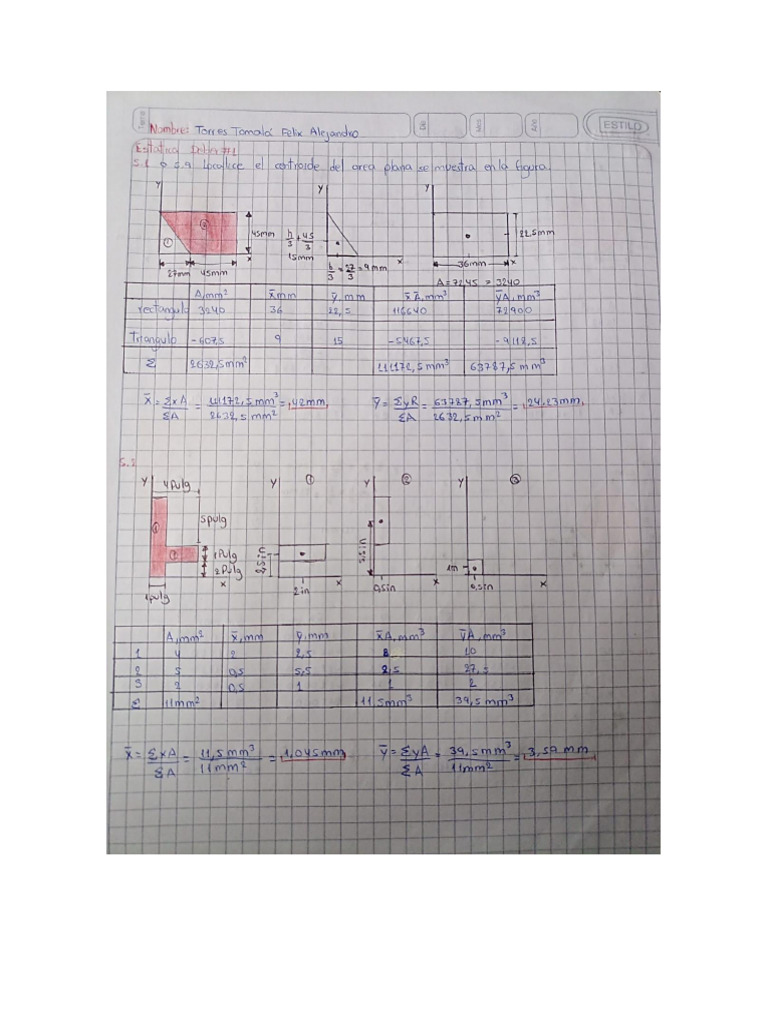 Fecha Día Mes Año ESTILO
Nombre: Torres Tomalá Felix Alejandro
Estatica Deber #1
5.1 a 5.9 Localice el centroide del area plana se muestra en la figura.
y y y
① ② 45mm h/3 = 45/3 22,5mm
15mm
27mm 45mm x b/3 = 27/3 = 9mm x 36mm x
A=72.45 = 3240
A,mm² x̄,mm ȳ,mm x̄A,mm³ ȳA,mm³
rectangulo 3240 36 22,5 116640 72900
Triangulo -607,5 9 15 -5467,5 -9112,5
Σ 2632,5mm² 111172,5mm³ 63787,5mm³
x̄ = ΣxA/ΣA = 111172,5mm³/2632,5mm² = 42mm ȳ = ΣyA/ΣA = 63787,5mm³/2632,5mm² = 24,23mm
5.2
y 4pulg y ① y ② y ③
5pulg
1pulg 2,5in 5,5in 1in
2pulg
1pulg x 2in x 0,5in x 0,5in x
A,mm² x̄,mm ȳ,mm x̄A,mm³ ȳA,mm³
1 4 2 2,5 8 10
2 5 0,5 5,5 2,5 27,5
3 2 0,5 1 1 2
Σ 11mm² 11,5mm³ 39,5mm³
x̄ = ΣxA/ΣA = 11,5mm³/11mm² = 1,045mm ȳ = ΣyA/ΣA = 39,5mm³/11mm² = 3,59mm